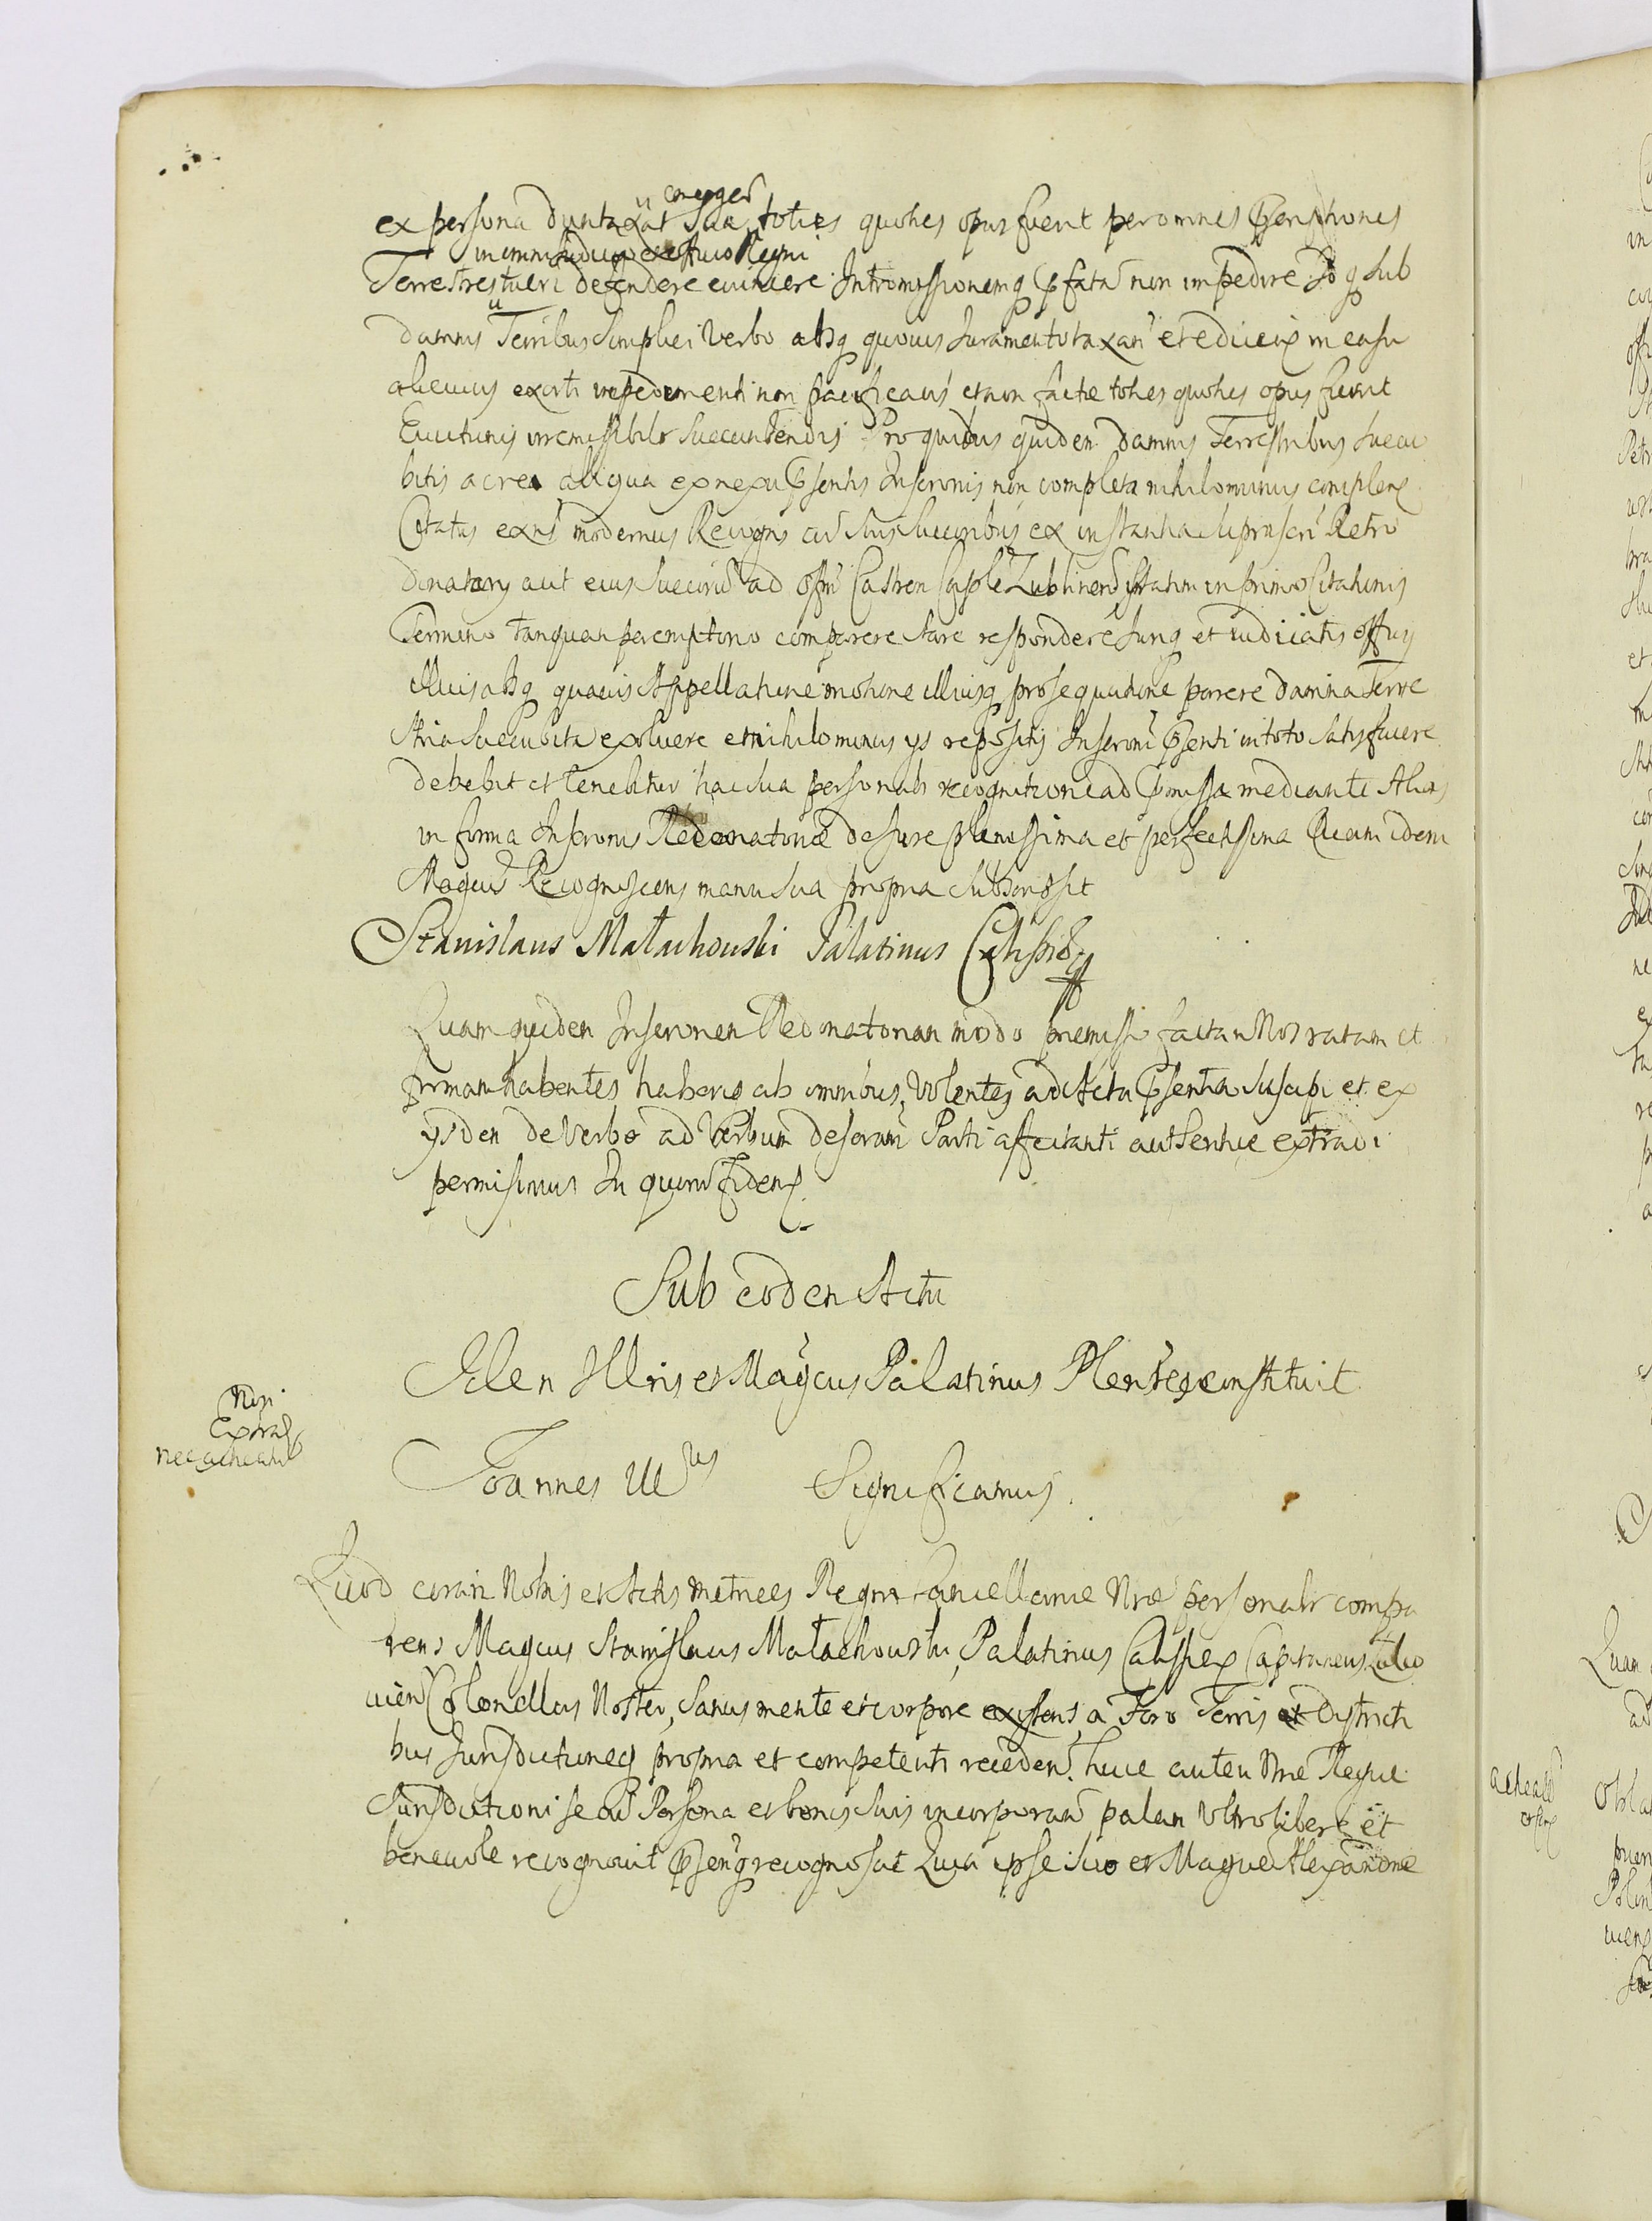 conjger
ex persona duntaxat sua, toties quoties opus fuerit per omnes Pscriptiones
in omni Iudicio et Officio Regni
Terrestres tueri defendere evincere Intromissionemq Pfata non impedire Idq sub
damnis Terribus simplici verbo absq quovis Iuramento taxan et in casu
alicuius exorti impedimenti non pacificavis et non factae toties quoties opus fuerit
Evictionis irremissibilr succumbendis Pro quibus quidem damnis Terrestribus succu
bitis ac re aliqua ex nexu Psentis Inscronis non completa nihilominus complen
Citatus exns modernus Recogns cu suis succoribus ex instantia suprascri Retro
donatary aut eius succoru ad offm Castren Caple Lublinen statim in primo Citationis
Termino tanquam peremptorio comparere stare respondere Iuriq et iudicatis offy
illius absq quavis Appellatione motione illiusq prosequutione parere damna Terre
stria succubita exolvere et nihilominus ys repositis Inscroni Psenti in toto satisfacere
debebit et tenebitur hac sua personali recognitione ad Pmissa mediante Alias
in forma Inscronis Redonatoriae de Iure plenissima et perfectissima Quam idem
Magcus Recognoscens manu sua propria subscripsit
Stanislaus Małachowski Palatinus Calissie
Quam quidem Inscronem Redonatoriam modo premisso factam Nos ratam et
firmam habentes haberiq ab omnibus, volentes ad Acta Psentia suscipi et ex
ysdem de verbo ad verbum descram Parti affectanti authentice extradi
permisimus In quoru fidem
Sub eodem Actu
Idem Illris et Magcus Palatinus Plentes constituit
Non
Extrad
nec
Joannes III us Significamus.
Quod coram Nobis et Actis Metrices Regni Cancellariae Nrae personalr compa
rens Magcus Stanislaus Małachowski, Palatinus Calissien Capitaneus
Colonellus Noster, sanus mente et corpore existens, a Foro Terris et Districti
bus Iurisdictioneq propria et competenti recedens, huic autem Nrae Regiae
Iurisdictioni se cu Persona et bonis suis incorporan palam ultro libere et
benevole recognovit Psentq recognoscit Quia ipse suo et Magcae Alexandrae